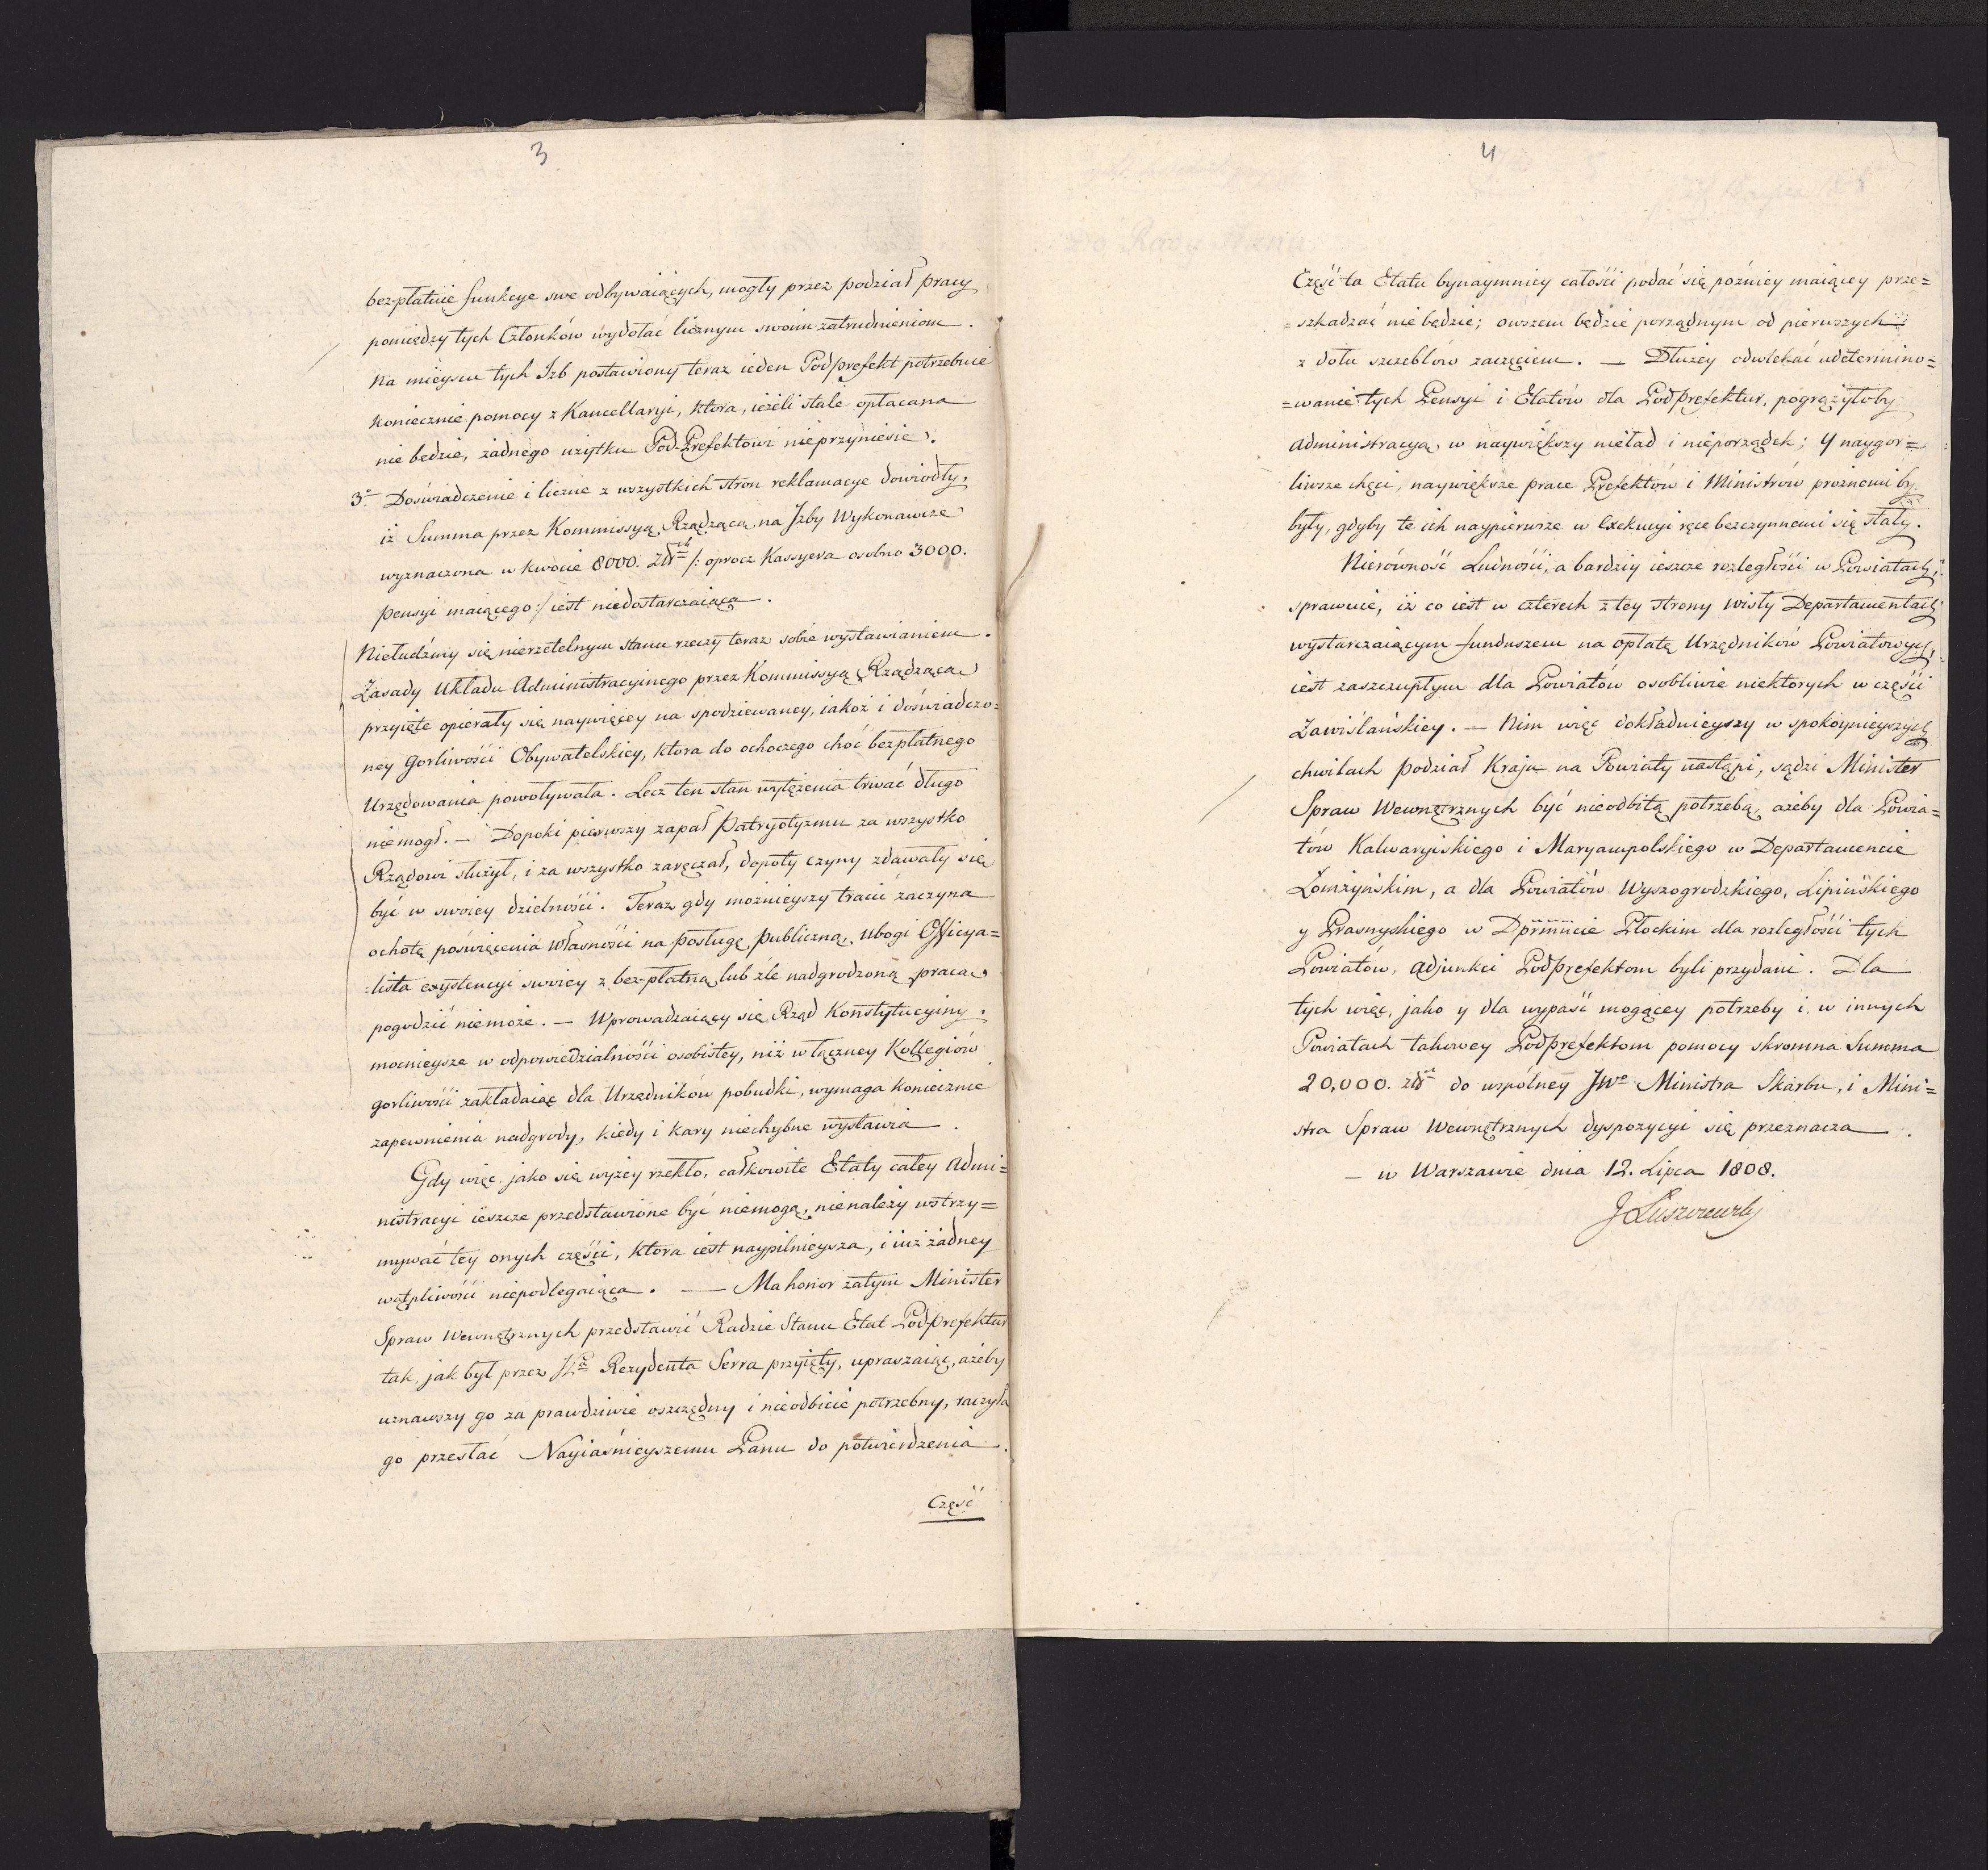 3
bezpłatnie funkcye swe odbywaiących, mogły przez podział pracy
pomiędzy tych Członków wydołać licznym swoim zatrudnieniom.
Na mieyscu tych Izb postawiony teraz ieden Podprefekt potrzebuie
koniecznie pomocy z Kancellaryi, ktora, ieżeli stale opłacana
nie będzie, żadnego użytku Pod-Prefektowi nieprzyniesie.
3o Doświadczenie i liczne z wszystkich stron reklamacye dowiodły,
iż Summa przez Kommissyą Rządzącą na Izby Wykonawcze
wyznaczona w kwocie 8000. Złt /: oprocz Kassyera osobno 3000.
pensyi maiącego :/ iest niedostarczaiąca.
Niełudźmy się nierzetelnym stanu rzeczy teraz sobie wystawianiem.
Zasady Układu Administracyinego przez Kommissyą Rządzącą
przyięte opierały się naywięcey na spodziewaney, iakoż i doświadczo=
ney gorliwości Obywatelskiey, ktora do ochoczego choć bezpłatnego
Urzędowania powoływała. Lecz ten stan wytężenia trwać długo
niemogł. — Dopoki pierwszy zapał Patryotyzmu za wszystko
Rządowi służył, i za wszystko zaręczał, dopoty czyny zdawały się
być w swoiey dzielności. Teraz gdy możnieyszy tracić zaczyna
ochotę poświęcenia własności na posługę publiczną, ubogi Officya=
=lista exystencyi swoiey z bez-płatną lub źle nadgrodzoną pracą
pogodzić niemoże. — Wprowadzaiący się Rząd Konstytucyiny,
mocnieysze w odpowiedzialności osobistey, niż w łączney Kollegiów
gorliwości zakładaiąc dla Urzędników pobudki, wymaga koniecznie
zapewnienia nadgrody, kiedy i kary niechybne wystawia.
Gdy więc, jako się wyżey rzekło, całkowite Etaty całey Admi=
nistracyi ieszcze przedstawione być niemogą, nienależy wstrzy=
mywać tey onych części, ktora iest naypilnieysza, i iuż żadney
wątpliwości niepodlegaiąca. — Ma honor zatym Minister
Spraw Wewnętrznych przedstawić Radzie Stanu Etat Podprefektur
tak, jak był przez JPa Rezydenta Serra przyięty, upraszaiąc, ażeby
uznawszy go za prawdziwie oszczędny i nieodbicie potrzebny, raczyła
go przesłać Nayiaśnieyszemu Panu do potwierdzenia.
Część
4
Część ta Etatu bynaymniey całości podać się poźniey maiącey prze=
=szkadzać nie będzie; owszem będzie porządnym od pierwszych
z dołu szczeblów zaczęciem. — Dłużey odwlekać udetermino=
=wanie tych Pensyi i Etatów dla Podprefektur, pogrążyłoby
Administracyą w naywiększy nieład i nieporządek; y naygor=
liwsze chęci, naywiększe prace Prefektów i Ministrów prożnemi by
były, gdyby te ich naypierwsze w Exekucyi ręce bezczynnemi się stały.
Nierówność Ludności, a bardziy ieszcze rozległości w Powiatach,
sprawuie, iż co iest w czterech z tey strony Wisły Departamentach
wystarczaiącym funduszem na opłatę Urzędników Powiatowych,
iest zaszczupłym dla Powiatów osobliwie niektorych w części
Zawiślańskiey. — Nim więc dokładnieyszy w spokoynieyszych
chwilach podział Kraju na Powiaty nastąpi, sądzi Minister
Spraw Wewnętrznych być nieodbitą potrzebą, ażeby dla Powia=
tów Kalwaryiskiego i Maryampolskiego w Departamencie
Łomżyńskim, a dla Powiatów Wyszogrodzkiego, Lipińskiego
y Prasnyskiego w Dprmncie Płockim dla rozległości tych
Powiatów, Adjunkci Podprefektom byli przydani. Dla
tych więc, jako y dla wypaść mogącey potrzeby i w innych
Powiatach takowey Podprefektom pomocy skromna Summa
20,000. złt do wspólney JWo Ministra Skarbu, i Mini=
stra Spraw Wewnętrznych dyspozycyi się przeznacza.
— w Warszawie dnia 12. Lipca 1808.
J Łuszczewski